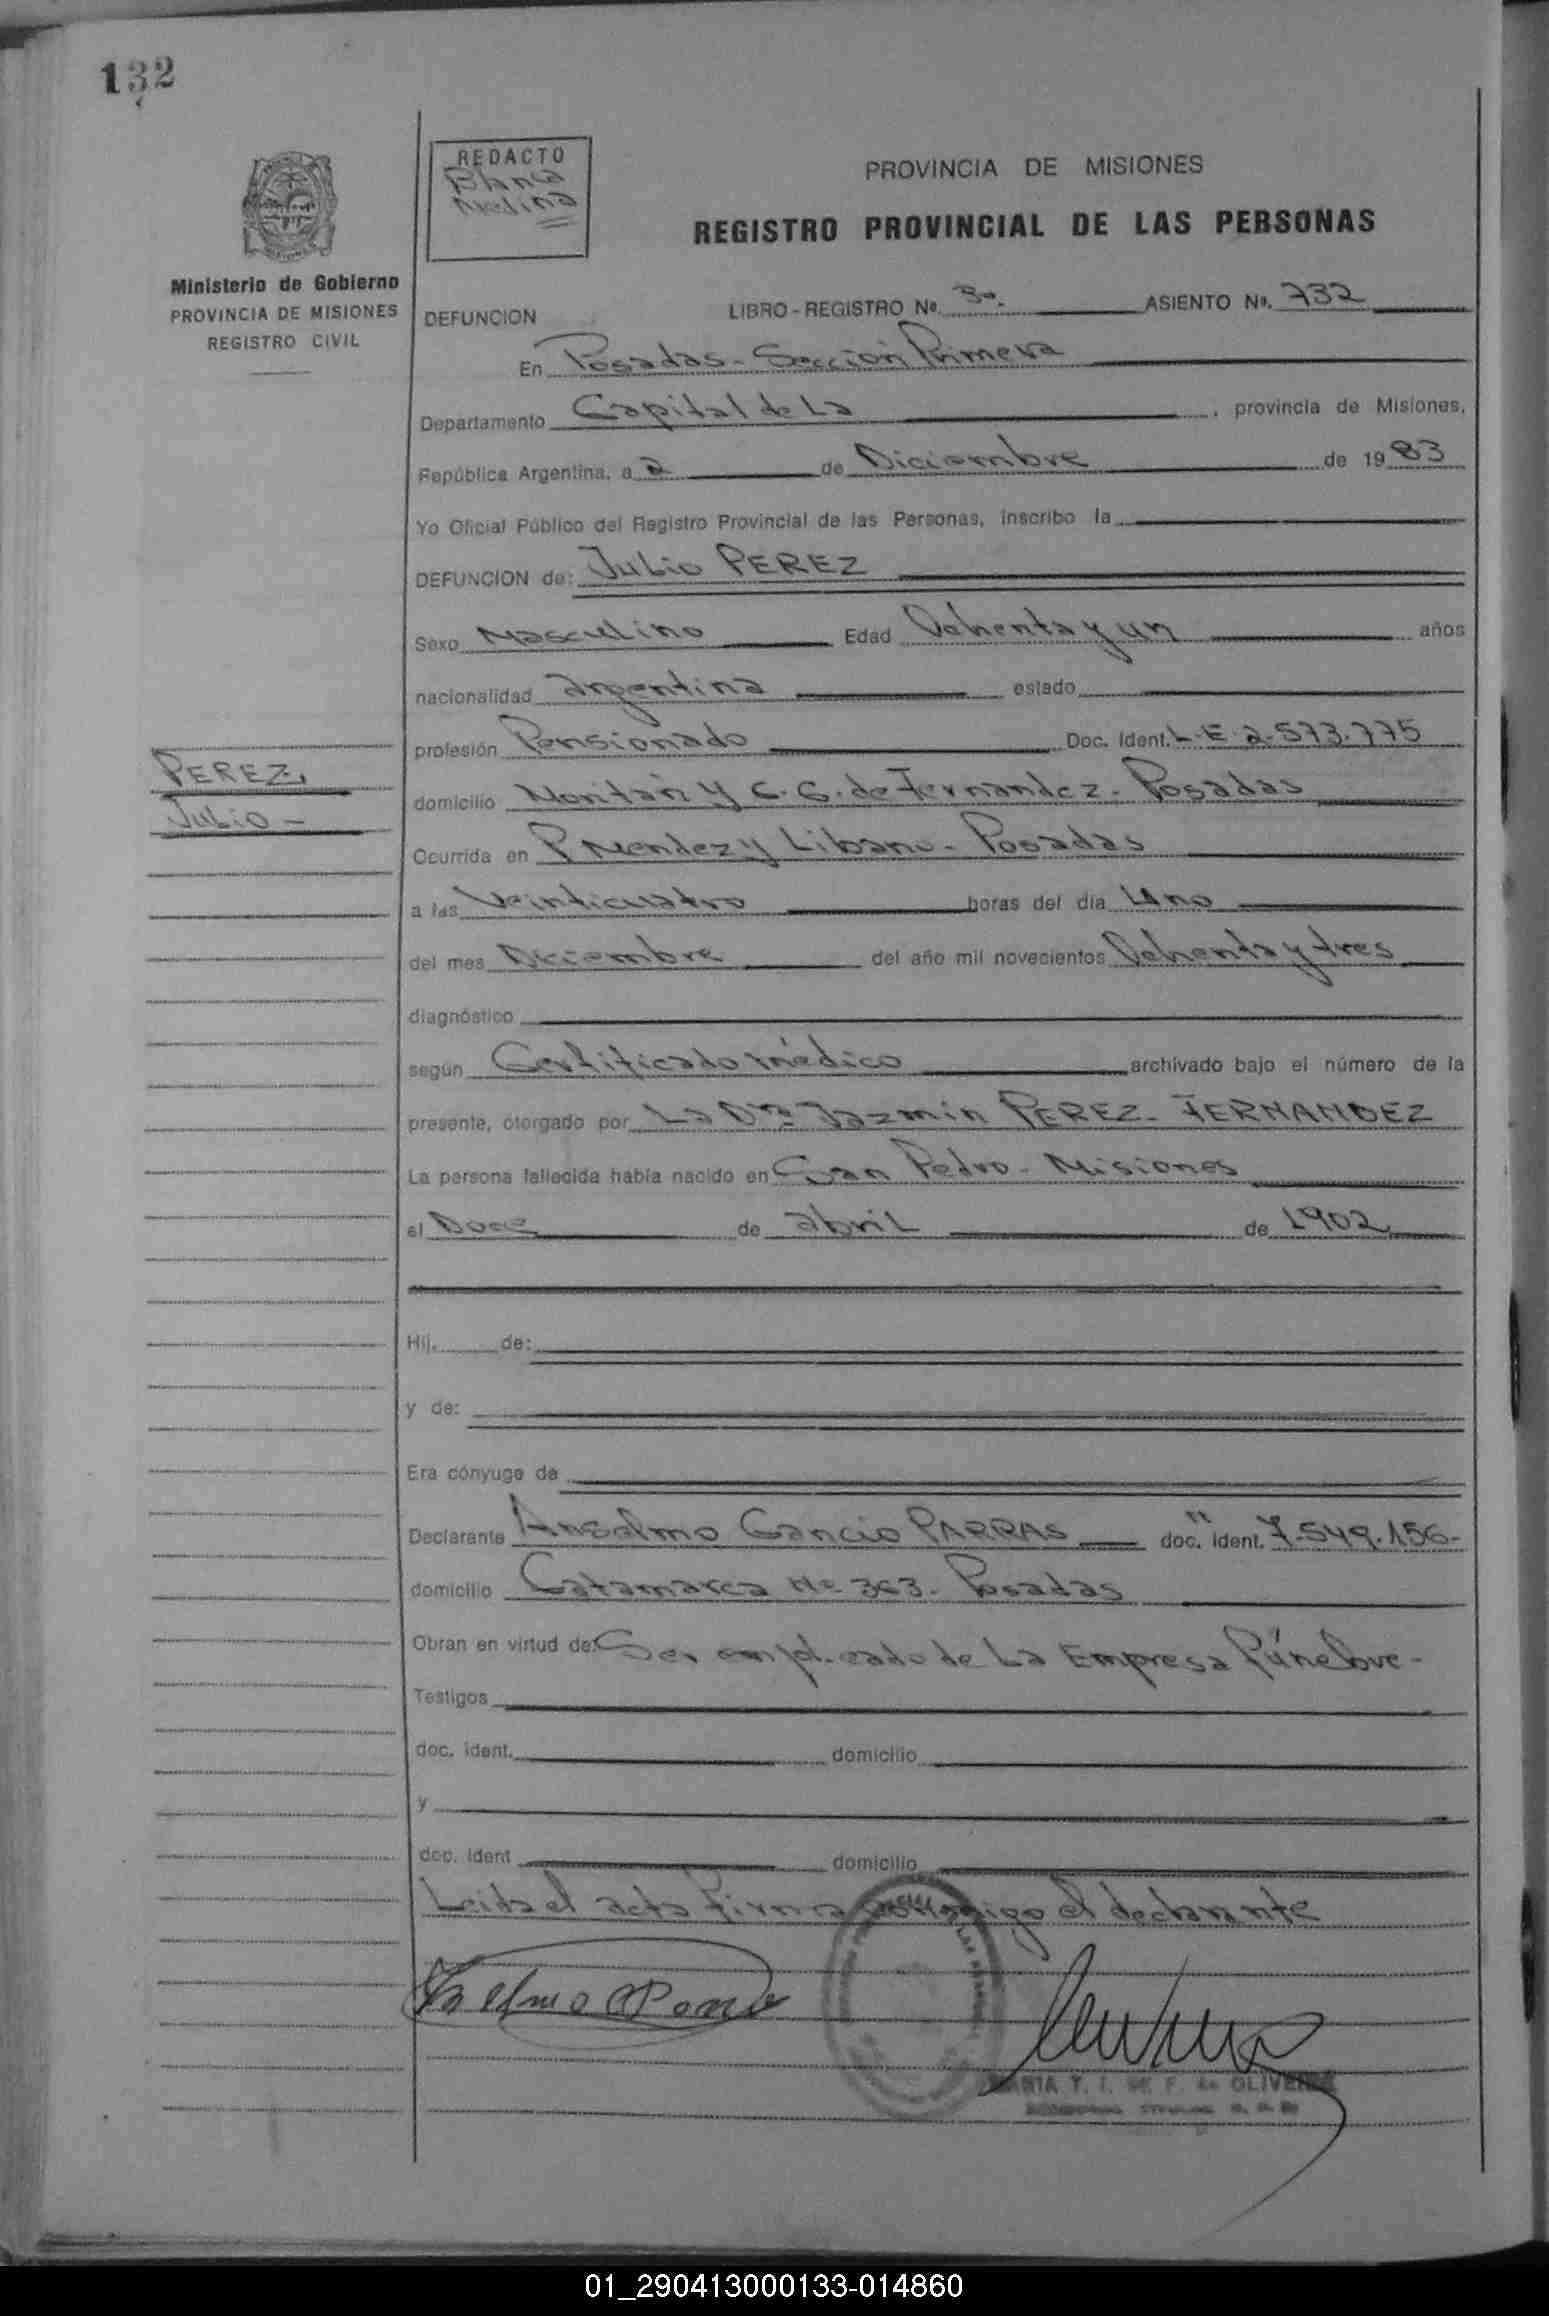 132
REDACTO
Blanca
Medina
PROVINCIA DE MISIONES
REGISTRO PROVINCIAL DE LAS PERSONAS
Ministerio de Gobierno
PROVINCIA DE MISIONES
REGISTRO CIVIL
DEFUNCION
LIBRO-REGISTRO Nº. 3º. ASIENTO Nº. 732
En Posadas - Sección Primera
Departamento Capital de La, provincia de Misiones,
República Argentina, a 2 de Diciembre de 1983
Yo Oficial Público del Registro Provincial de las Personas, inscribo la
DEFUNCION de: Julio PEREZ
Sexo Masculino Edad Ochenta y un años
nacionalidad argentina estado
profesión Pensionado Doc. Ident. L.E. 2.573.775
PEREZ,
Julio -
domicilio y C. G. de Fernandez - Posadas
Ocurrida en P Mendez y Libano - Posadas
a las Veinticuatro horas del día Uno
del mes Diciembre del año mil novecientos Ochenta y tres
diagnóstico
según Certificado médico archivado bajo el número de la
presente, otorgado por La Dra Jazmin PEREZ - FERNANDEZ
La persona fallecida había nacido en San Pedro - Misiones
el Doce de abril de 1902
Hij. de:
y de:
Era cónyuge de
Declarante Anselmo Cancio PARRAS doc. ident. 7.549.156-
domicilio Catamarca Nº 363 - Posadas
Obran en virtud de: Ser empleado de La Empresa Fúnebre -
Testigos
doc. ident. domicilio
y
doc. ident domicilio
Leida el acta firma conmigo el declarante
MARIA T. I. DE F. de OLIVEIRA
01_290413000133-014860